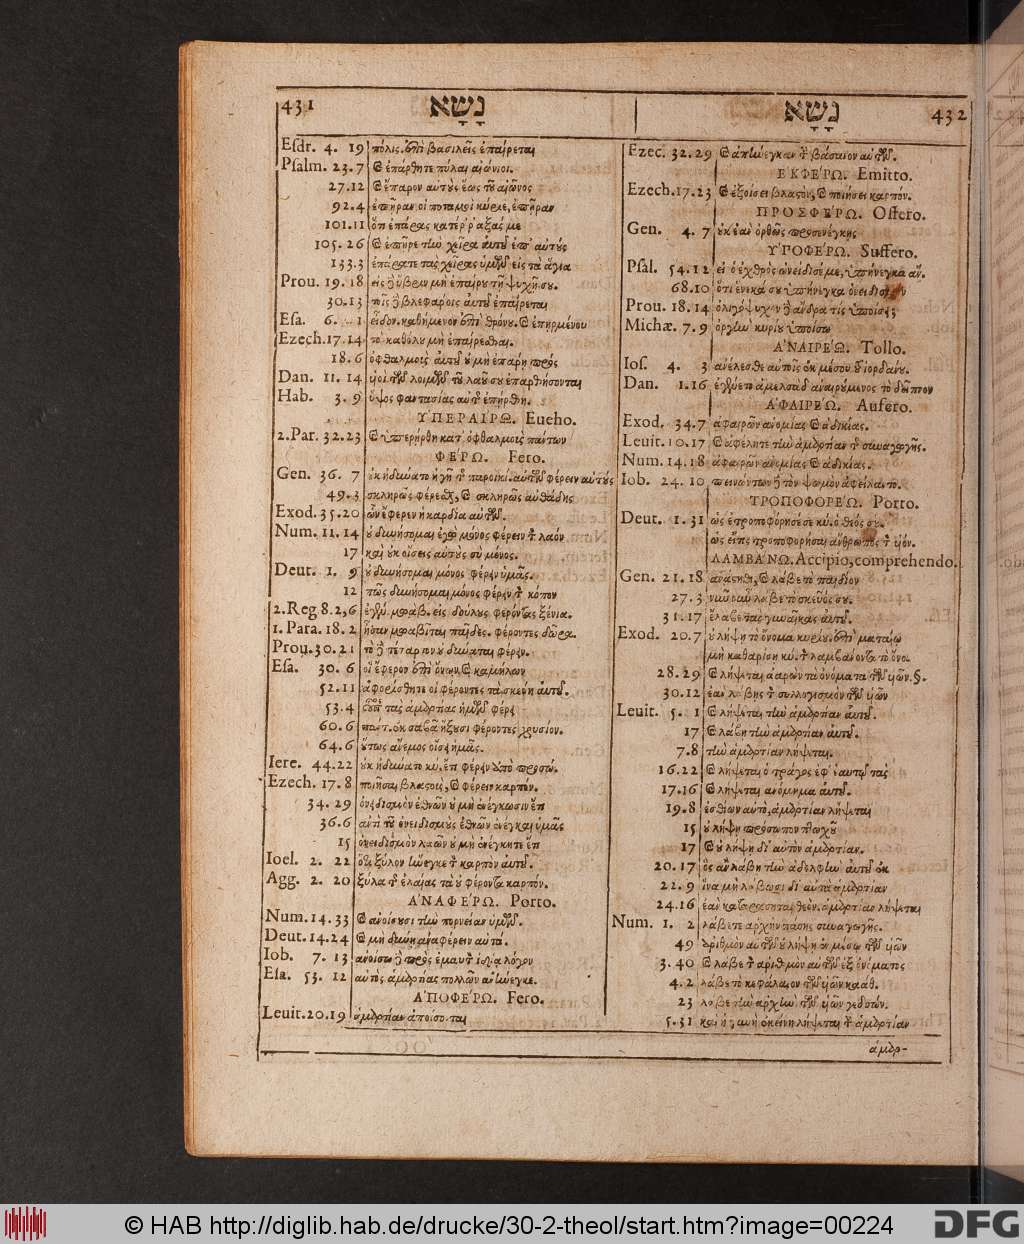 431 נָשָׂא
Esdr. 4. 19 πόλις ἐπὶ βασιλεῖς ἐπαίρεται
Psalm. 23. 7 & ἐπάρθητε πύλαι αἰώνιοι.
27.12 & ἔπαρον αὐτοὺς ἕως τοῦ αἰῶνος
92.4 ἐπῆραν οἱ ποταμοὶ κύριε, ἐπῆραν
101.11 ὅτι ἐπάρας κατέρραξάς με
105.26 & ἐπῆρε τὴν χεῖρα αὐτοῦ ἐπ' αὐτοὺς
133.3 ἐπάρατε τὰς χεῖρας ὑμῶν εἰς τὰ ἅγια
Prou. 19. 18 εἰς δὲ ὕβριν μὴ ἐπαίρου τῇ ψυχῇ σου.
30.13 τοῖς δὲ βλεφάροις αὐτοῦ ἐπαίρεται
Esa. 6. 1 εἶδον καθήμενον ἐπὶ θρόνου & ἐπηρμένου
Ezech. 17. 14 τὸ καθόλου μὴ ἐπαίρεσθαι.
18.6 ὀφθαλμοὺς αὐτοῦ οὐ μὴ ἐπάρῃ πρὸς
Dan. 11. 14 υἱοὶ τῶν λοιμῶν τοῦ λαοῦ σου ἐπαρθήσονται
Hab. 3. 9 ὕψος φαντασίας αὐτοῦ ἐπήρθη.
ΥΠΕΡΑΙΡΩ. Eueho.
2. Par. 32.23 & ὑπερήρθη κατ' ὀφθαλμοὺς πάντων
ΦΕΡΩ. Fero.
Gen. 36. 7 οὐκ ἠδύνατο ἡ γῆ τῆς παροικ. αὐτῶν φέρειν αὐτούς
49.3 σκληρὸς φέρεσθαι, & σκληρὸς αὐθάδης
Exod. 35.20 ὧν ἔφερεν ἡ καρδία αὐτῶν.
Num. 11. 14 οὐ δυνήσομαι ἐγὼ μόνος φέρειν τὸν λαόν
17 καὶ οὐκ οἴσεις αὐτοὺς σὺ μόνος.
Deut. 1. 9 οὐ δυνήσομαι μόνος φέρειν ὑμᾶς.
12 πῶς δυνήσομαι μόνος φέρειν τὸν κόπον
2. Reg 8. 2,6 ἐγέν. μωαβ. εἰς δούλους φέροντας ξένια.
1. Para. 18. 2 ἦσαν μωαβῖται παῖδες. φέροντες δῶρα.
Prou. 30. 21 τὸ δὲ τέταρτον οὐ δύναται φέρειν.
Esa. 30. 6 οἳ ἔφερον ἐπὶ ὄνων & καμήλων
52. 11 ἀφορίσθητε οἱ φέροντες τὰ σκεύη αὐτοῦ.
53. 4 οὗτος τὰς ἁμαρτίας ἡμῶν φέρει
60. 6 παντ. ἐκ σαβὰ ἥξουσι φέροντες χρυσίον.
64. 6 οὕτως ἄνεμος οἴσει ἡμᾶς.
Iere. 44. 22 οὐκ ἠδύνατο κύ. ἔτι φέρειν ἀπὸ προσώ.
Ezech. 17. 8 ποιῆσαι βλαστοὺς, & φέρειν καρπόν.
34. 29 ὀνειδισμὸν ἐθνῶν οὐ μὴ ἐνέγκωσιν ἔτι
36. 6 ἀντὶ τοῦ ὀνειδισμοὺς ἐθνῶν ἐνέγκαι ὑμᾶς
15 ὀνειδισμὸν λαῶν οὐ μὴ ἀνέγκητε ἔτι
Ioel. 2. 22 ὅτι ξύλον ἤνεγκε τὸν καρπὸν αὐτοῦ.
Agg. 2. 20 ξύλα τῆς ἐλαίας τὰ οὐ φέροντα καρπόν.
ΑΝΑΦΕΡΩ. Porto.
Num. 14. 33 & ἀνοίσουσι τὴν πορνείαν ὑμῶν.
Deut. 14. 24 & μὴ δύνῃ ἀναφέρειν αὐτά.
Iob. 7. 13 ἀνοίσω δὲ πρὸς ἐμαυτὸν ἰδίᾳ λόγον
Esa. 53. 12 αὐτὸς ἁμαρτίας πολλῶν ἀνήνεγκε.
ΑΠΟΦΕΡΩ. Fero.
Leuit. 20. 19 ἁμαρτίαν ἀποίσονται
נָשָׂא 432
Ezec. 32. 29 & ἀπήνεγκαν τὴν βάσανον αὐτῶν.
ΕΚΦΕΡΩ. Emitto.
Ezech. 17. 23 & ἐξοίσει βλαστόν, & ποιήσει καρπόν.
ΠΡΟΣΦΕΡΩ. Offero.
Gen. 4. 7 οὐκ ἐὰν ὀρθῶς προσενέγκῃς
ΥΠΟΦΕΡΩ. Suffero.
Psal. 54. 12 εἰ ὁ ἐχθρὸς ὠνείδισέ με, ὑπήνεγκα ἄν.
68. 10 ὅτι ἕνεκά σου ὑπήνεγκα ὀνειδισμόν
Prou. 18. 14 ὀλιγόψυχον δὲ ἄνδρα τίς ὑποίσει;
Michæ. 7. 9 ὀργὴν κυρίου ὑποίσω
ΑΝΑΙΡΕΩ. Tollo.
Ios. 4. 3 ἀνέλεσθε αὐτοῖς ἐκ μέσου τοῦ ἰορδάνου.
Dan. 1. 16 ἐγένετο ἀμελσὰδ ἀναιρούμενος τὸ δεῖπνον
ΑΦΑΙΡΕΩ. Aufero.
Exod. 34. 7 ἀφαιρῶν ἀνομίας & ἀδικίας.
Leuit. 10. 17 & ἀφέλητε τὴν ἁμαρτίαν τῆς συναγωγῆς.
Num. 14. 18 ἀφαιρῶν ἀνομίας & ἀδικίας.
Iob. 24. 10 πεινώντων δὲ τὸν ψωμὸν ἀφείλαντο.
ΤΡΟΠΟΦΟΡΕΩ. Porto.
Deut. 1. 31 ὡς ἐτροποφόρησέ σε κύ. ὁ θεός σου.
ὡς εἴ τις τροποφορήσαι ἄνθρωπος τὸν υἱόν.
ΛΑΜΒΑΝΩ. Accipio, comprehendo.
Gen. 21. 18 ἀνάστηθι, & λάβε τὸ παιδίον
27. 3 νῦν οὖν λάβε τὸ σκεῦός σου.
31. 17 ἔλαβε τὰς γυναῖκας αὐτοῦ.
Exod. 20. 7 οὐ λήψῃ τὸ ὄνομα κυρίου ἐπὶ ματαίῳ
μὴ καθαρίσῃ κύ. τὸν λαμβάνοντα τὸ ὄνο.
28. 29 & λήψεται ἀαρὼν τὰ ὀνόματα τῶν υἱῶν §.
30. 12 ἐὰν λάβῃς τὸν συλλογισμὸν τῶν υἱῶν
Leuit. 5. 1 & λήψεται τὴν ἁμαρτίαν αὐτοῦ.
17 & λάβῃ τὴν ἁμαρτίαν αὐτοῦ.
7. 8 τὴν ἁμαρτίαν λήψεται.
16. 22 & λήψεται ὁ τράγος ἐφ' ἑαυτῷ τὰς
17. 16 & λήψεται ἀνόμημα αὐτοῦ.
19. 8 ἐσθίων αὐτὸ, ἁμαρτίαν λήψεται
15 οὐ λήψῃ πρόσωπον πτωχοῦ
17 & οὐ λήψῃ δι' αὐτὸν ἁμαρτίαν.
20. 17 ὃς ἂν λάβῃ τὴν ἀδελφὴν αὐτοῦ ἐκ
22. 9 ἵνα μὴ λάβωσι δι' αὐτὰ ἁμαρτίαν
24. 16 ἐὰν καταράσηται θεὸν. ἁμαρτίαν λήψεται
Num. 1. 2 λάβετε ἀρχὴν πάσης συναγωγῆς.
49 ἀριθμὸν αὐτῶν οὐ λήψῃ ἐν μέσῳ τῶν υἱῶν
3. 40 & λάβε τὸν ἀριθμὸν αὐτῶν ἐξ ὀνόματος
4. 2 λάβε τὸ κεφάλαιον τῶν υἱῶν καάθ.
23 λάβε τὴν ἀρχὴν τῶν υἱῶν γεδσών.
5. 31 καὶ ἡ γυνὴ ἐκείνη λήψεται τὴν ἁμαρτίαν
ἁμαρ-
© HAB http://diglib.hab.de/drucke/30-2-theol/start.htm?image=00224
DFG